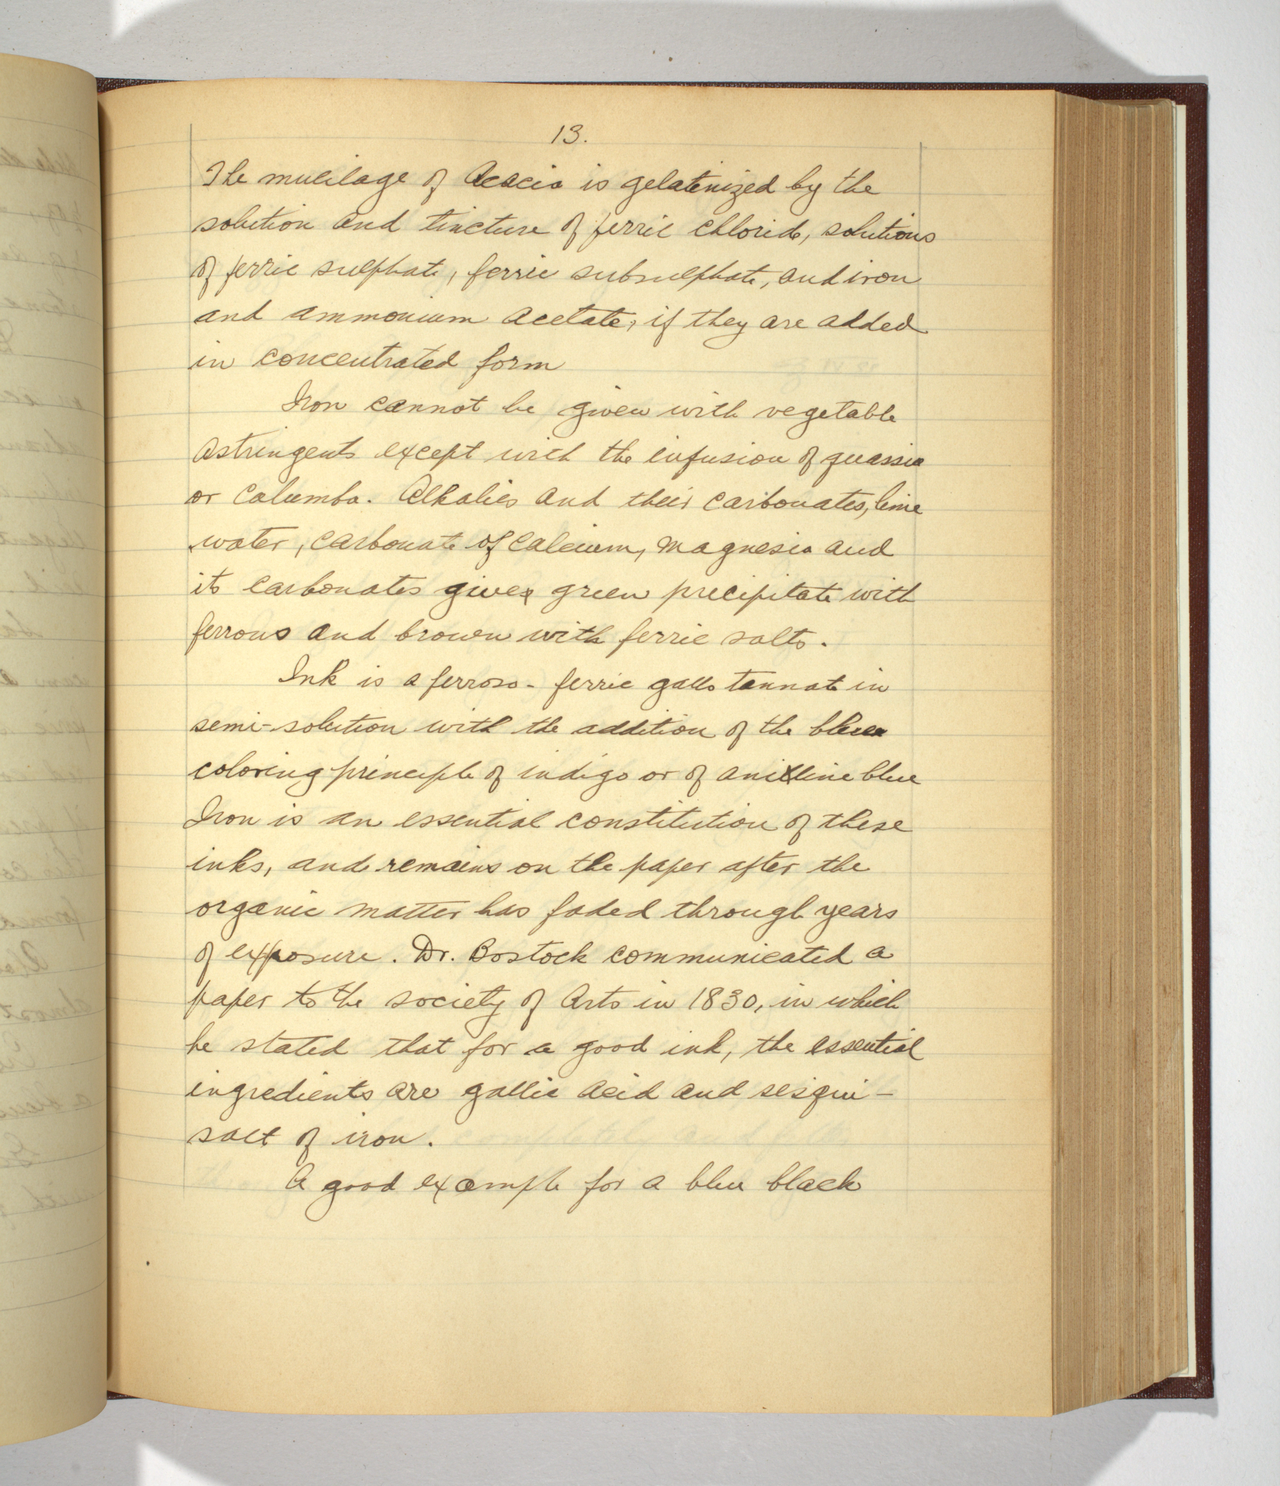 13.
The mucilage of Acacia is gelatinized by the
solution and tincture of ferric chlorid, solutions
of ferric sulphate, ferric subsulphate, and iron
and ammonium acetate, if they are added
in concentrated form
Iron cannot be given with vegetable
astringents except with the infusion of quassia
or Calumba. Alkalies and their carbonates, lime
water, carbonate of calcium, magnesia and
its carbonates give green precipitate with
ferrous and brown with ferric salts.
Ink is a ferroso-ferric gallo tannate in
semi-solution with the addition of the blue
coloring principle of indigo or of aniline blue
Iron is an essential constitution of these
inks, and remains on the paper after the
organic matter has faded through years
of exposure. Dr. Bostock communicated a
paper to the society of Arts in 1830, in which
he stated that for a good ink, the essential
ingredients are gallic acid and sesqui-
salt of iron.
A good example for a blue black